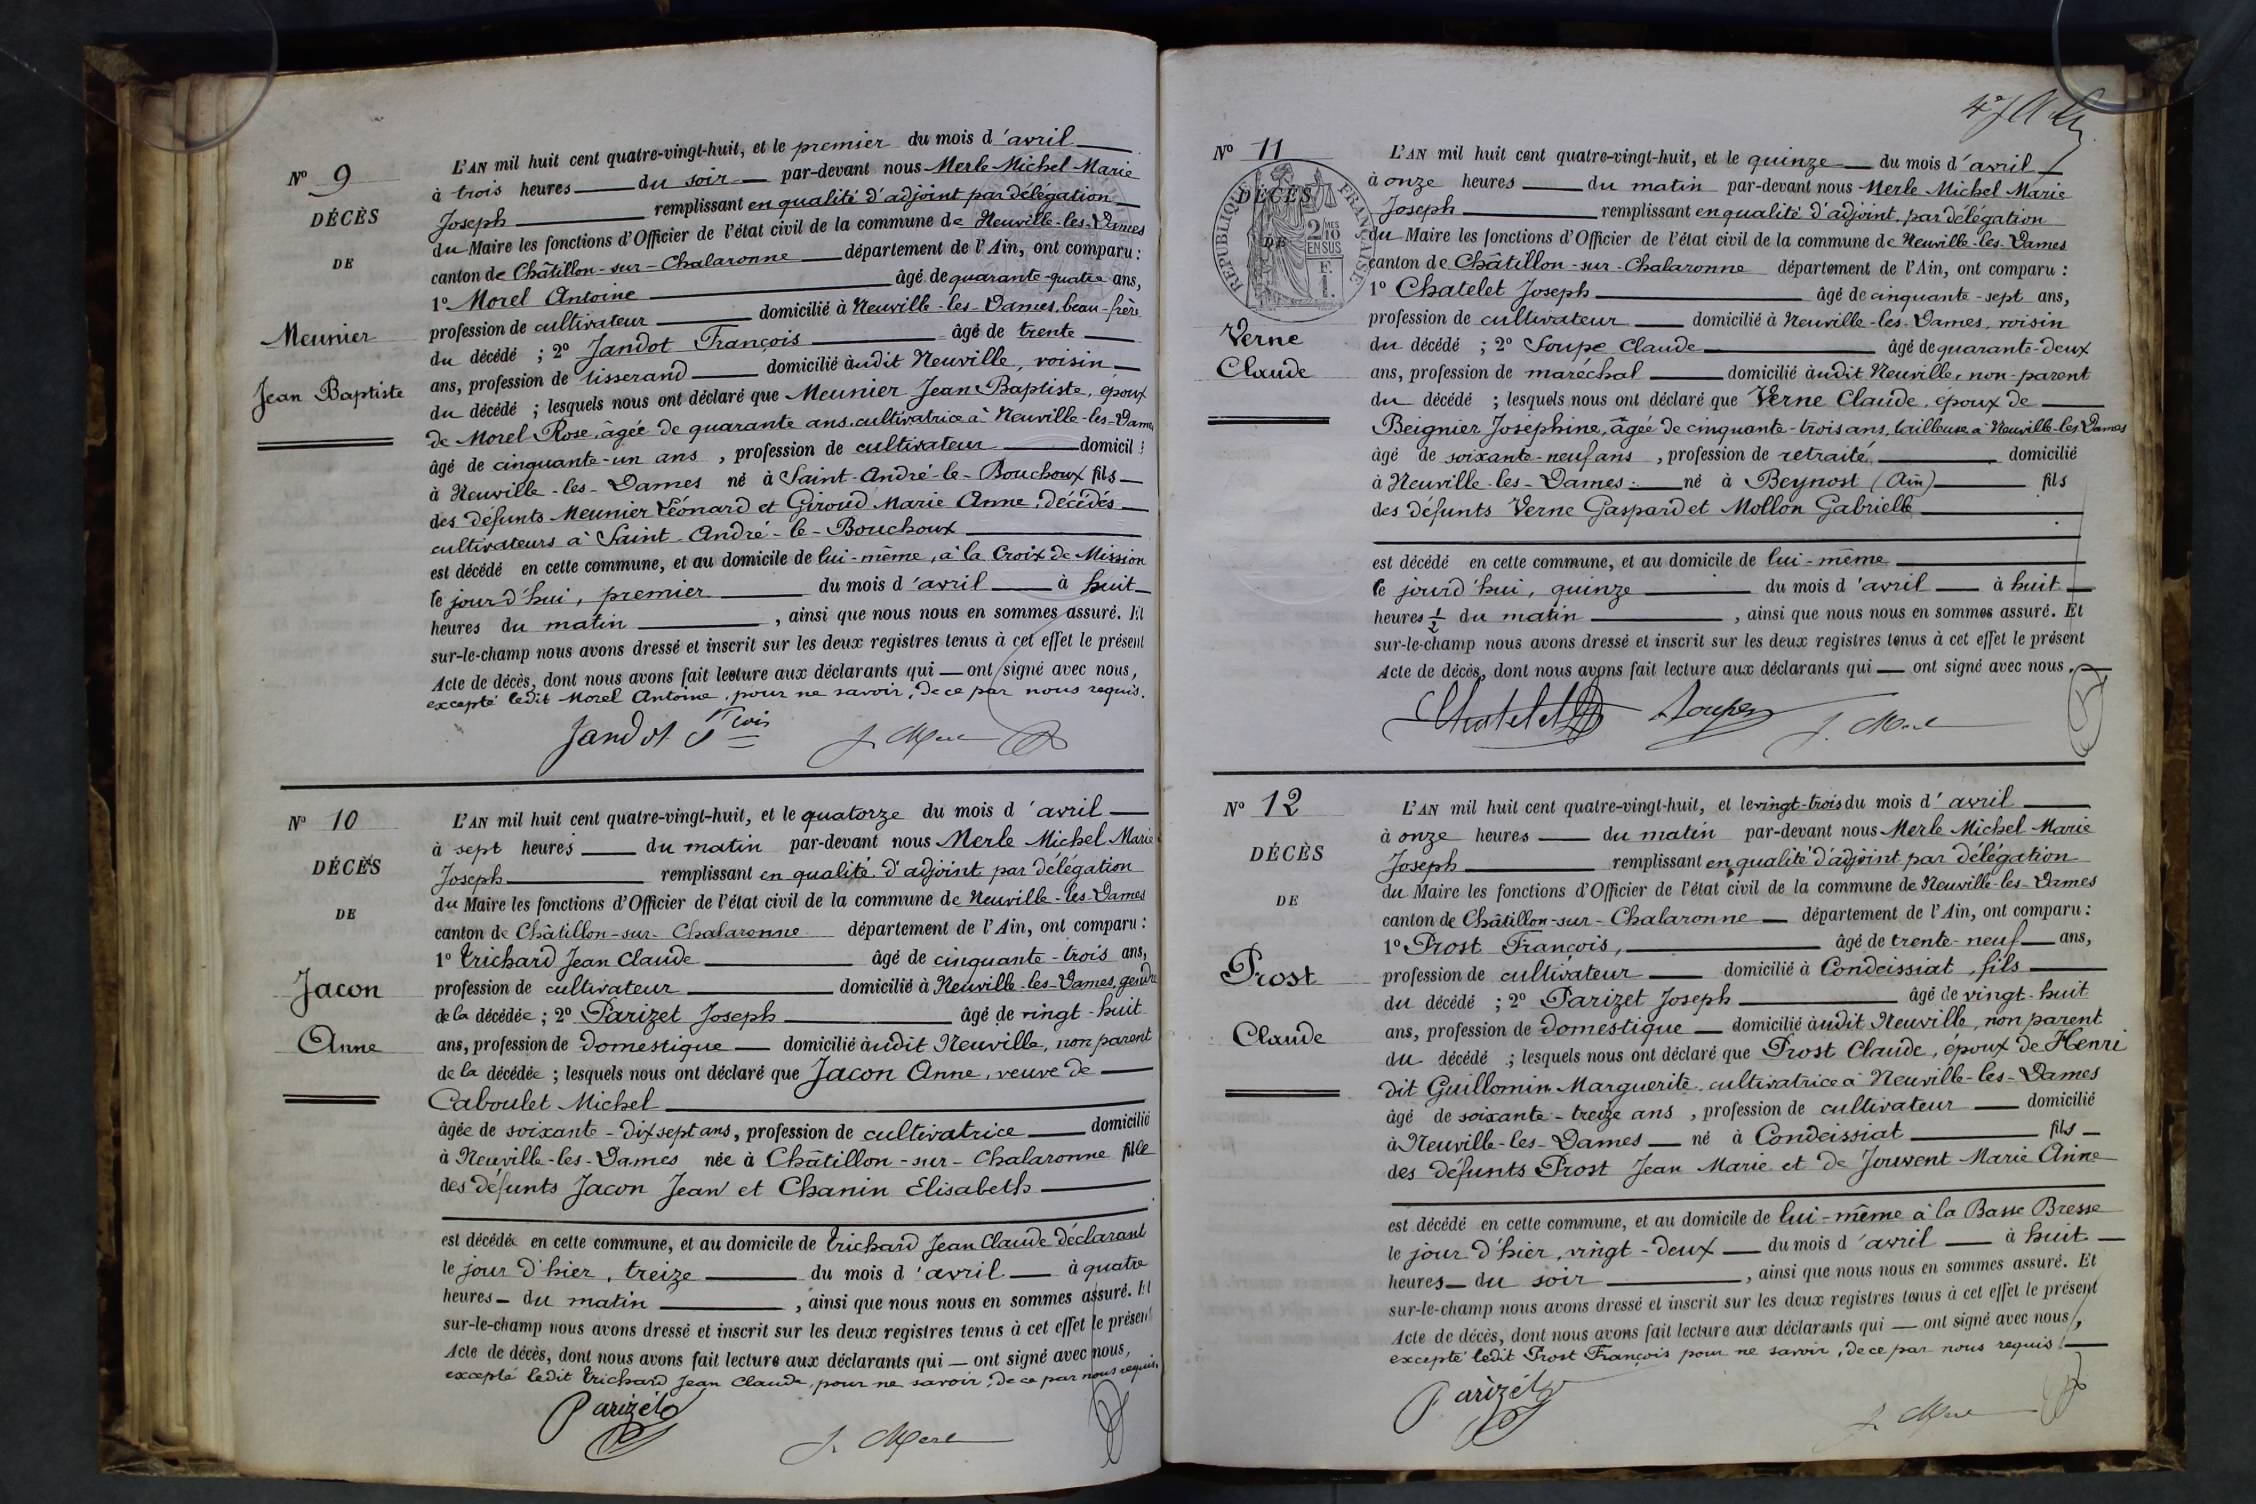 N° 9
DÉCÈS
DE
Meunier
Jean Baptiste
L'AN mil huit cent quatre-vingt-huit, et le premier du mois d'avril
à trois heures du soir par-devant nous Merle Michel Marie
Joseph remplissant en qualité d'adjoint par délégation
du Maire les fonctions d'Officier de l'état civil de la commune de Neuville-les-Dames
canton de Châtillon-sur-Chalaronne département de l'Ain, ont comparu :
1° Morel Antoine âgé de quarante-quatre ans,
profession de cultivateur domicilié à Neuville-les-Dames, beau-frère
du décédé ; 2° Jandot François âgé de trente
ans, profession de tisserand domicilié àudit Neuville, voisin
du décédé ; lesquels nous ont déclaré que Meunier Jean Baptiste, époux
de Morel Rose, âgée de quarante ans, cultivatrice à Neuville-les-Dames
âgé de cinquante-un ans, profession de cultivateur domicilié
à Neuville-les-Dames né à Saint-André-le-Bouchoux fils
des défunts Meunier Léonard et Giroud Marie Anne, décédés
cultivateurs à Saint-André-le-Bouchoux
est décédé en cette commune, et au domicile de lui-même, à la Croix de Mission
le jour d'hui, premier du mois d'avril à huit
heures du matin, ainsi que nous nous en sommes assuré. Et
sur-le-champ nous avons dressé et inscrit sur les deux registres tenus à cet effet le présent
Acte de décès, dont nous avons fait lecture aux déclarants qui ont signé avec nous,
excepté ledit Morel Antoine, pour ne savoir, de ce par nous requis.
Jandot Fcois J. Merle
N° 10
DÉCÈS
DE
Jacon
Anne
L'AN mil huit cent quatre-vingt-huit, et le quatorze du mois d'avril
à sept heures du matin par-devant nous Merle Michel Marie
Joseph remplissant en qualité d'adjoint par délégation
du Maire les fonctions d'Officier de l'état civil de la commune de Neuville-les-Dames
canton de Châtillon-sur-Chalaronne département de l'Ain, ont comparu :
1° Trichard Jean Claude âgé de cinquante-trois ans,
profession de cultivateur domicilié à Neuville-les-Dames, gendre
de la décédée ; 2° Parizet Joseph âgé de vingt-huit
ans, profession de domestique domicilié àudit Neuville, non parent
de la décédée ; lesquels nous ont déclaré que Jacon Anne, veuve de
Caboulet Michel
âgée de soixante-dix sept ans, profession de cultivatrice domicilié
à Neuville-les-Dames née à Châtillon-sur-Chalaronne fille
des défunts Jacon Jean et Chanin Elisabeth
est décédée en cette commune, et au domicile de Trichard Jean Claude déclarant
le jour d'hier, treize du mois d'avril à quatre
heures du matin, ainsi que nous nous en sommes assuré. Et
sur-le-champ nous avons dressé et inscrit sur les deux registres tenus à cet effet le présent
Acte de décès, dont nous avons fait lecture aux déclarants qui ont signé avec nous,
excepté ledit Trichard Jean Claude, pour ne savoir, de ce par nous requis.
Parizet J. Merle
N° 11
DÉCÈS
DE
RÉPUBLIQUE FRANÇAISE
2/10 MES
EN SUS
F.
1.
Verne
Claude
L'AN mil huit cent quatre-vingt-huit, et le quinze du mois d'avril
à onze heures du matin par-devant nous Merle Michel Marie
Joseph remplissant en qualité d'adjoint, par délégation
du Maire les fonctions d'Officier de l'état civil de la commune de Neuville-les-Dames
canton de Châtillon-sur-Chalaronne département de l'Ain, ont comparu :
1° Chatelet Joseph âgé de cinquante-sept ans,
profession de cultivateur domicilié à Neuville-les-Dames, voisin
du décédé ; 2° Soupe Claude âgé de quarante-deux
ans, profession de maréchal domicilié àudit Neuville, non-parent
du décédé ; lesquels nous ont déclaré que Verne Claude, époux de
Beignier Joséphine, âgée de cinquante-trois ans, tailleuse à Neuville-les-Dames
âgé de soixante-neuf ans, profession de retraité domicilié
à Neuville-les-Dames né à Beynost (Ain) fils
des défunts Verne Gaspard et Mollon Gabrielle
est décédé en cette commune, et au domicile de lui-même
le jourd'hui, quinze du mois d'avril à huit
heures 1/2 du matin, ainsi que nous nous en sommes assuré. Et
sur-le-champ nous avons dressé et inscrit sur les deux registres tenus à cet effet le présent
Acte de décès, dont nous avons fait lecture aux déclarants qui ont signé avec nous,
Chatelet Soupe J. Merle
N° 12
DÉCÈS
DE
Prost
Claude
L'AN mil huit cent quatre-vingt-huit, et le vingt-trois du mois d'avril
à onze heures du matin par-devant nous Merle Michel Marie
Joseph remplissant en qualité d'adjoint par délégation
du Maire les fonctions d'Officier de l'état civil de la commune de Neuville-les-Dames
canton de Châtillon-sur-Chalaronne département de l'Ain, ont comparu :
1° Prost François, âgé de trente-neuf ans,
profession de cultivateur domicilié à Condeissiat, fils
du décédé ; 2° Parizet Joseph âgé de vingt-huit
ans, profession de domestique domicilié àudit Neuville, non parent
du décédé ; lesquels nous ont déclaré que Prost Claude, époux de Henri
dit Guillomin Marguerite, cultivatrice à Neuville-les-Dames
âgé de soixante-treize ans, profession de cultivateur domicilié
à Neuville-les-Dames né à Condeissiat fils
des défunts Prost Jean Marie et de Jouvent Marie Anne
est décédé en cette commune, et au domicile de lui-même à la Basse Bresse
le jour d'hier, vingt-deux du mois d'avril à huit
heures du soir, ainsi que nous nous en sommes assuré. Et
sur-le-champ nous avons dressé et inscrit sur les deux registres tenus à cet effet le présent
Acte de décès, dont nous avons fait lecture aux déclarants qui ont signé avec nous,
excepté ledit Prost François pour ne savoir, de ce par nous requis.
Parizet J. Merle